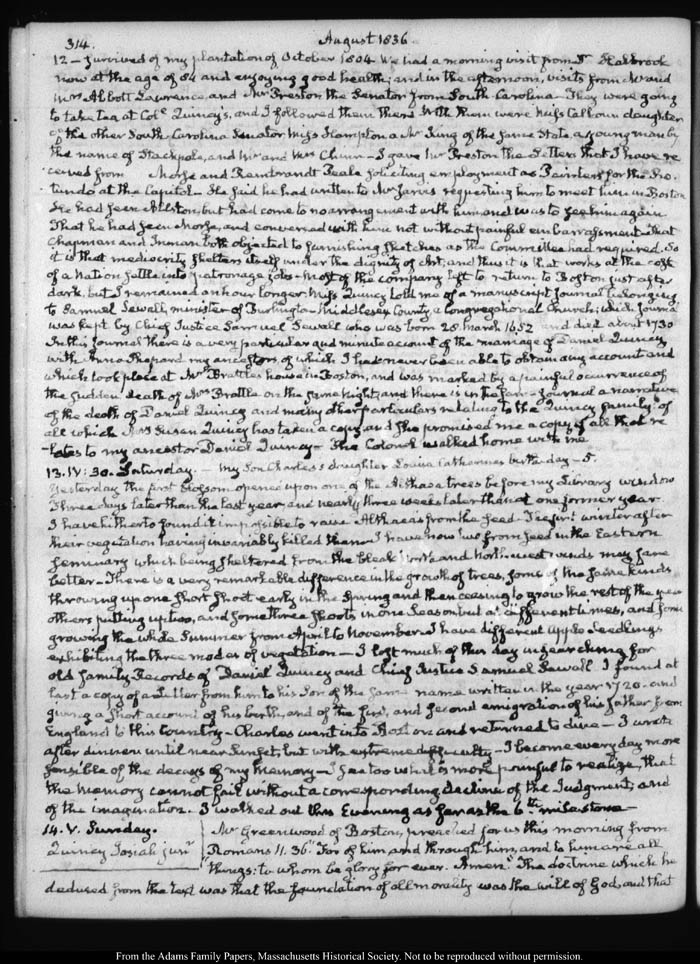 314. August 1836
12 — survived of my plantation of October 1804. We had a morning visit from Dr Holbrook
now at the age of 84 and enjoying good health; and in the afternoon, visits from Mr and
Mrs Abbott Lawrence and Mr Preston the Senator from South-Carolina. They were going
to take tea at Col. Quincy's, and I followed them there. With them were Miss Calhoun daughter
of the other South-Carolina Senator Miss Hampton a Mr King of the same State a young man by
the name of Stackpole, and Mr and Mrs — I gave Mr Preston the Letters that I have re-
ceived from Morse and Rembrandt Peale soliciting employment as Painters for the Ro-
tunda at the Capitol — He said he had written to Mr Jarvis requesting him to meet him in Boston
He had seen Allston, but had come to no arrangement with him and was to see him again.
That he had seen Morse, and conversed with him not without painful embarrassment. That
Chapman and Inman both objected to furnishing sketches as the Committee had required. So
it is that mediocrity shelters itself under the dignity of Art, and thus it is that works at the cost
of a Nation settle into patronage jobs — Most of the company left to return to Boston just after
dark, but I remained an hour longer. Miss Quincy told me of a manuscript Journal belonging
to Samuel Sewall, minister of Burlington Middlesex County, a Congregational Church; which Journal
was kept by Chief Justice Samuel Sewall who was born 28. March 1652 and died about 1730
In this Journal there is a very particular and minute account of the marriage of Daniel Quincy
with Anna Shepard my ancestors, of which I had never been able to obtain any account and
which took place at Mr Brattle's house in Boston, and was marked by a painful occurrence of
the sudden death of Mrs Brattle on the same night, and there is in the same Journal a narrative
of the death of Daniel Quincy and many other particulars relating to the Quincy family, of
all which Miss Susan Quincy has taken a copy, and she promised me a copy of all that re-
lates to my ancestor Daniel Quincy — The Colonel walked home with me
13. IV: 30. Saturday. — My Son Charles's daughter Louisa Catharine's birth-day — 5.
Yesterday the first blossom opened upon one of the Althaea trees before my Library window
Three days later than the last year, and nearly three weeks later than at one former year
I have hitherto found it impossible to raise Althaeas from the seed. The first winter after
their vegetation having invariably killed them. I have now two from seed in the Eastern
Seminary which being sheltered from the bleak North and Northwest winds may fare
better. There is a very remarkable difference in the growth of trees, some of the same kinds
throwing up one short shoot early in the Spring and then ceasing to grow the rest of the year
others putting up two, and some three shoots in one Season but at different times, and some
growing the whole Summer from April to November. I have different apple seedlings
exhibiting the three modes of vegetation — I lost much of this day in searching for
old family Records of Daniel Quincy and Chief Justice Samuel Sewall I found at
last a copy of a Letter from him to his Son of the same name written in the year 1720. and
giving a short account of his birth, and of the first, and second emigration of his father from
England to this Country — Charles went into Boston and returned to dine — I wrote
after dinner until near Sunset, but with extreme difficulty — I become every day more
sensible of the decays of my memory — I see too what is more painful to realize, that
the Memory cannot fail without a corresponding decline of the Judgment, and
of the imagination. I walked out this Evening as far as the 6th milestone
14. V. Sunday. Mr Greenwood of Boston, preached for us this morning from
Quincy Josiah junr Romans 11. 36. "For of him and through him, and to him are all
things: to whom be glory for ever. Amen." The doctrine which he
deduced from the text was that the foundation of all morality was the will of God, and that
From the Adams Family Papers, Massachusetts Historical Society. Not to be reproduced without permission.